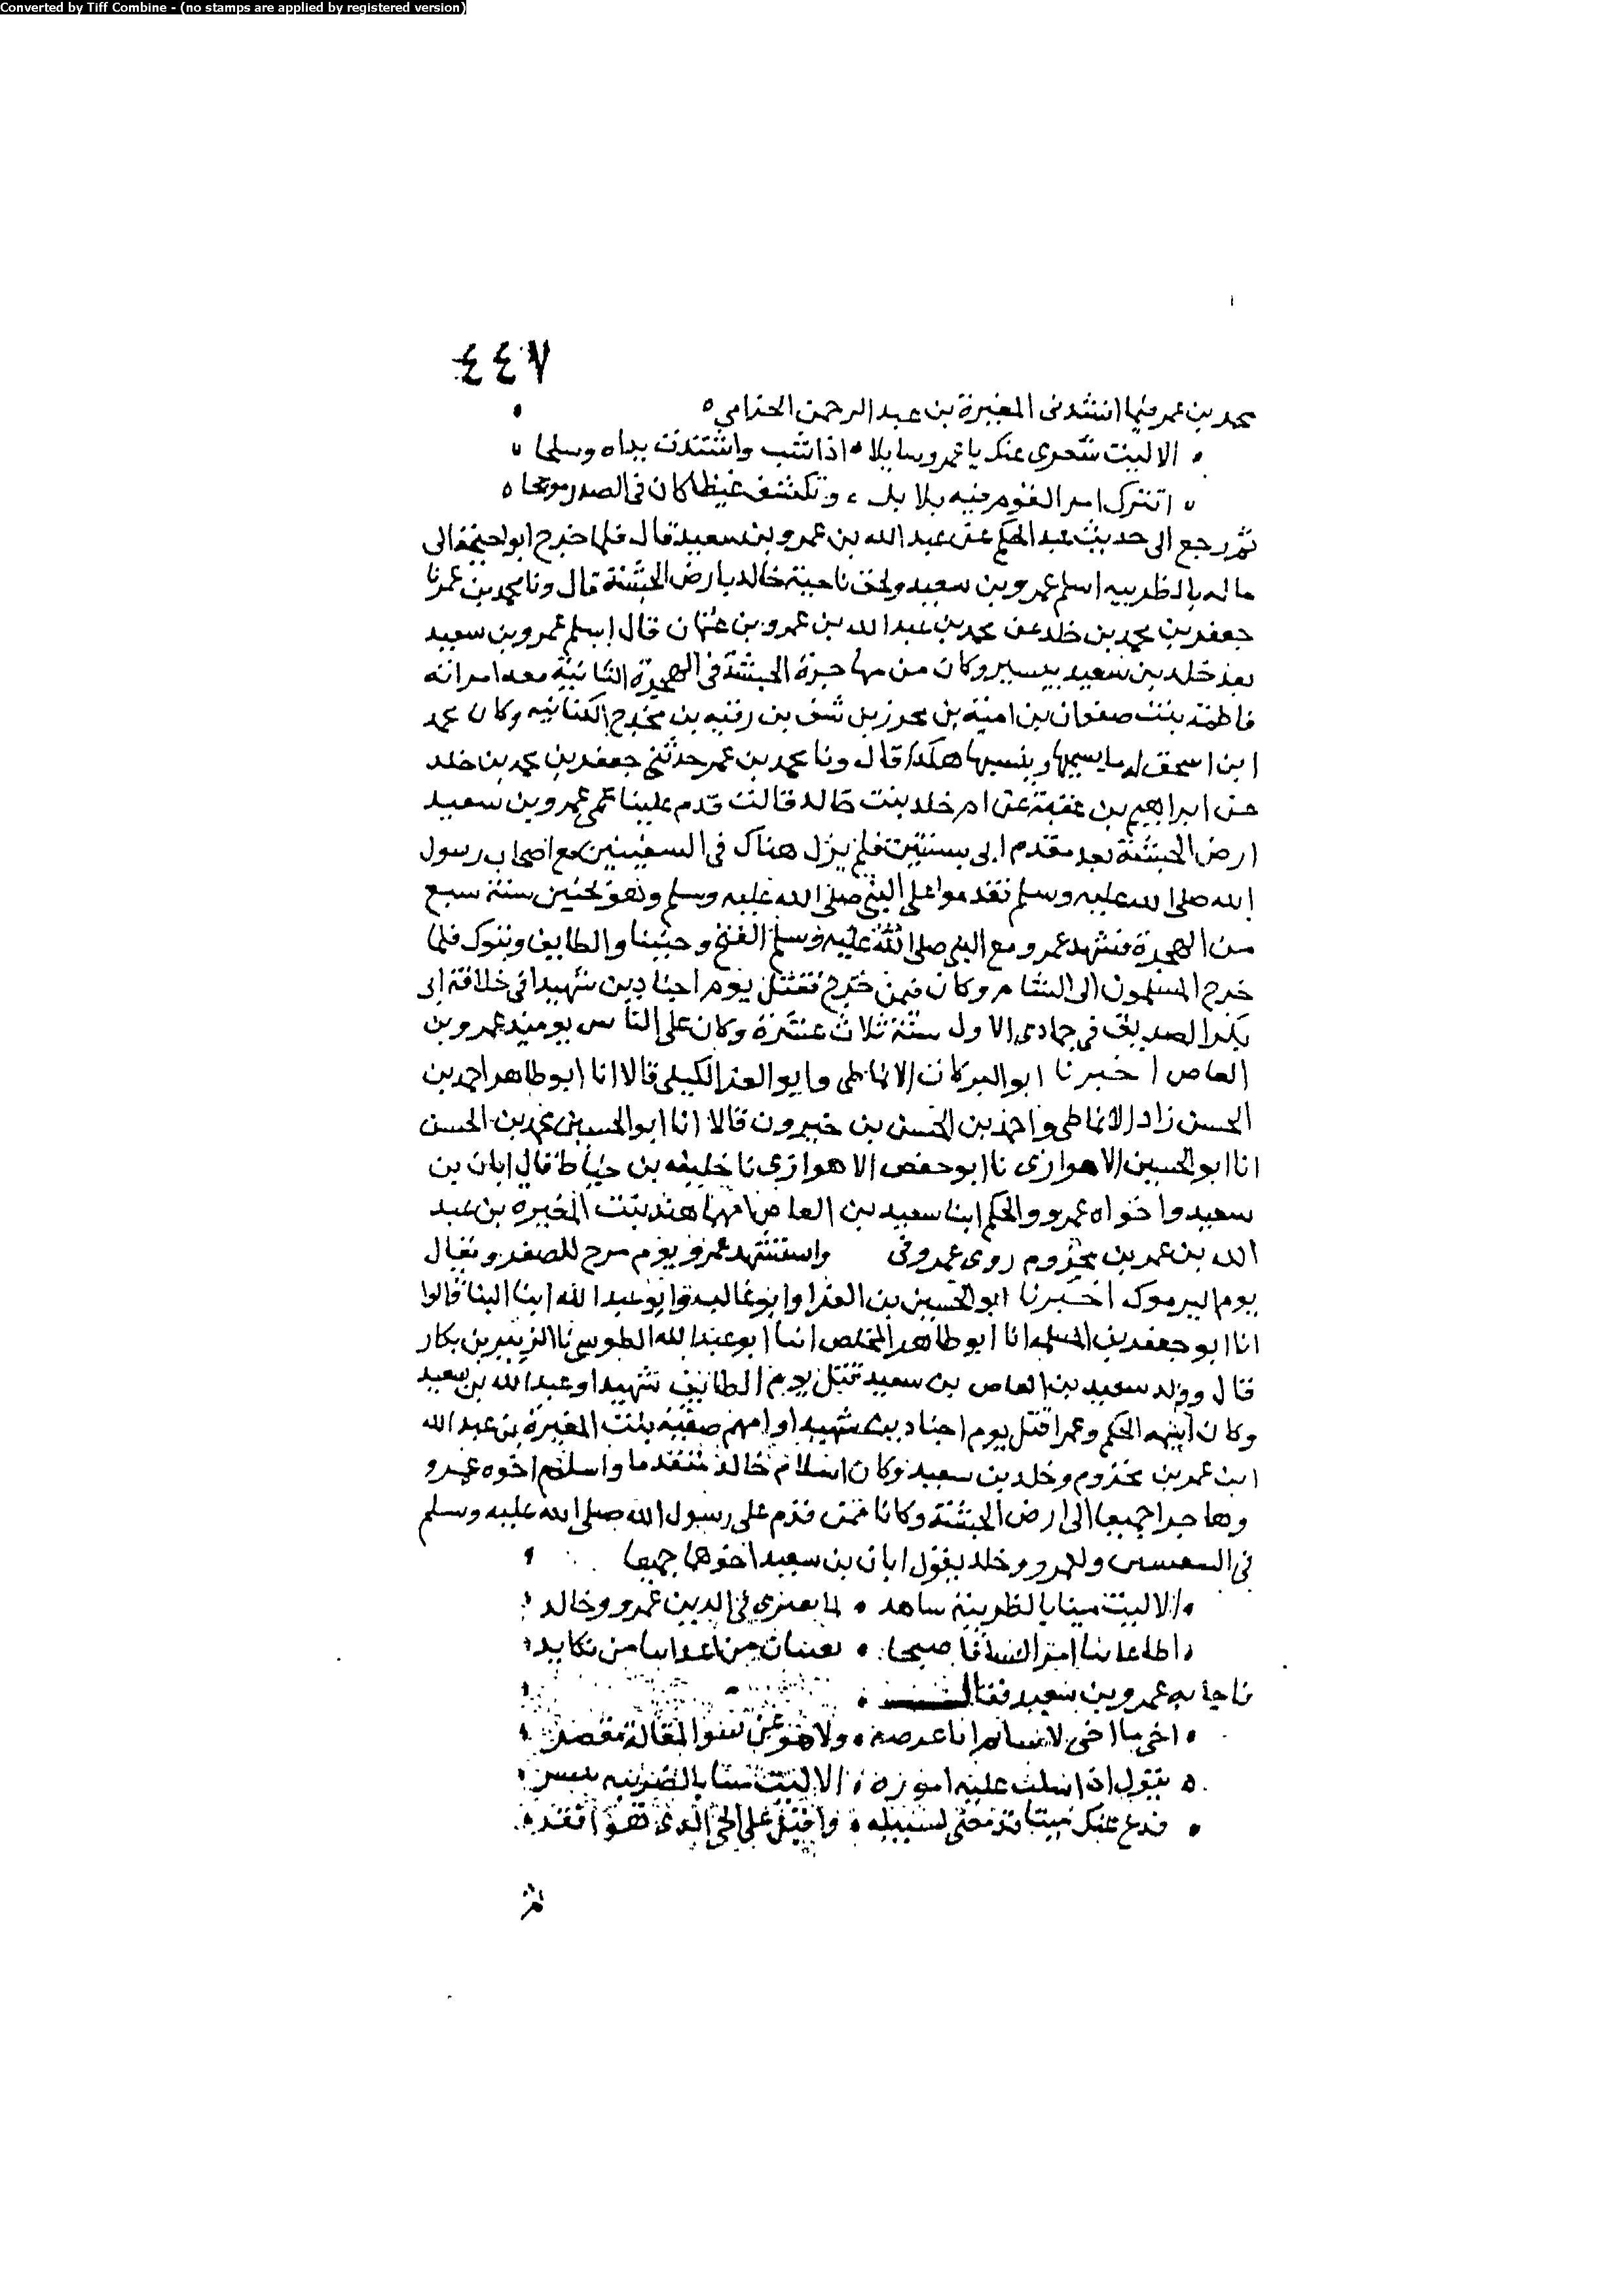 Converted by Tiff Combine - (no stamps are applied by registered version)
٤٤٧
محمد بن عمر فيما انشدنى المغيرة بن عبد الرحمن الحزامي
الا ليت شعري عنك يا عمرو سايلا اذا شب واشتدت يداه وسلحا
اتترك امر القوم فيه بلابل وتكشف غيظا كان في الصدر موجحا
ثم رجع الى حديث عبد الحكم عن عبد الله بن عمرو بن سعيد قال فلما خرج ابو احيحة الى
ماله بالظريبه اسلم عمرو بن سعيد ولحق باخيه خالد بارض الحبشة قال ونا محمد بن عمر نا
جعفر بن محمد بن خلد عن محمد بن عبد الله بن عمرو بن عثمان قال اسلم عمرو بن سعيد
بعد خلد بن سعيد بيسير وكان من مهاجرة الحبشة في الهجرة الثانية معه امراته
فاطمة بنت صفوان بن امية بن محرز بن شق بن رقبه بن مخدج الكنانيه وكان محمد
ابن اسحق يسميها وينسبها هكذا قال ونا محمد بن عمر حدثني جعفر بن محمد بن خلد
عن ابراهيم بن عقبة عن ام خلد بنت خالد قالت قدم علينا عمي عمرو بن سعيد
ارض الحبشة بعد مقدم ابي بسنتين فلم يزل هناك في السفينتين مع اصحاب رسول
الله صلى الله عليه وسلم فقدموا على النبي صلى الله عليه وسلم وهو بحنين سنة سبع
من الهجرة فشهد عمرو مع النبي صلى الله عليه وسلم الفتح وحنينا والطايف وتبوك فلما
خرج المسلمون الى الشام وكان فيمن خرج فقتل يوم اجنادين شهيدا في خلافة ابي
بكر الصديق في جمادي الاول سنة ثلاث عشرة وكان على الناس يوميذ عمرو بن
العاص اخبرنا ابو البركات الانماطي وابو العز الكيلي قالا انا ابو طاهر احمد بن
الحسن زاد الانماطي واحمد بن الحسن بن خيرون قالا انا ابو الحسين محمد بن الحسن
انا ابو الحسين الاهوازي نا ابو حفص الاهوازي نا خليفه بن خياط قال ابان بن
سعيد واخواه عمرو والحكم ابنا سعيد بن العاص امهما هند بنت المغيره بن عبد
الله بن عمر بن مخزوم روى عمرو في واستشهد عمرو يوم مرج للصفر ويقال
يوم اليرموك اخبرنا ابو الحسين بن الفرا وابو غالب وابو عبد الله ابنا البنا قالوا
انا ابو جعفر بن المسلمه انا ابو طاهر المخلص انا ابو عبد الله الطوسي نا الزبير بن بكار
قال وولد سعيد بن العاص بن سعيد قتل يوم الطايف شهيدا وعبد الله بن سعيد
وكان اسمه الحكم وعمرا قتل يوم اجنادين شهيدا وامهم صفية بنت المغيرة بن عبد الله
ابن عمر بن مخزوم وخلد بن سعيد وكان اسلام خالد متقدما واسلم اخوه عمرو
وهاجرا جميعا الى ارض الحبشة وكانا ممن قدم على رسول الله صلى الله عليه وسلم
في ولعمرو وخلد يقول ابان بن سعيد اخوهما جميعا
الا ليت ميتا بالظريبة شاهد لما يفتري في الدين عمرو وخالد
اطاعا بنا امر النسا فاصبحا يعينان من اعداينا من نكايد
فاجابه عمرو بن سعيد فقال
اخي يا اخي لا شاتم انا عرضه ولا هو عن سوا المقالة مقصر
يقول اذا اشتت عليه اموره الا ليت ميتا بالظريبه ينشر
فدع عنك ميتا قد مضى لسبيله واقبل على الحي الذي هو افقر
ثم